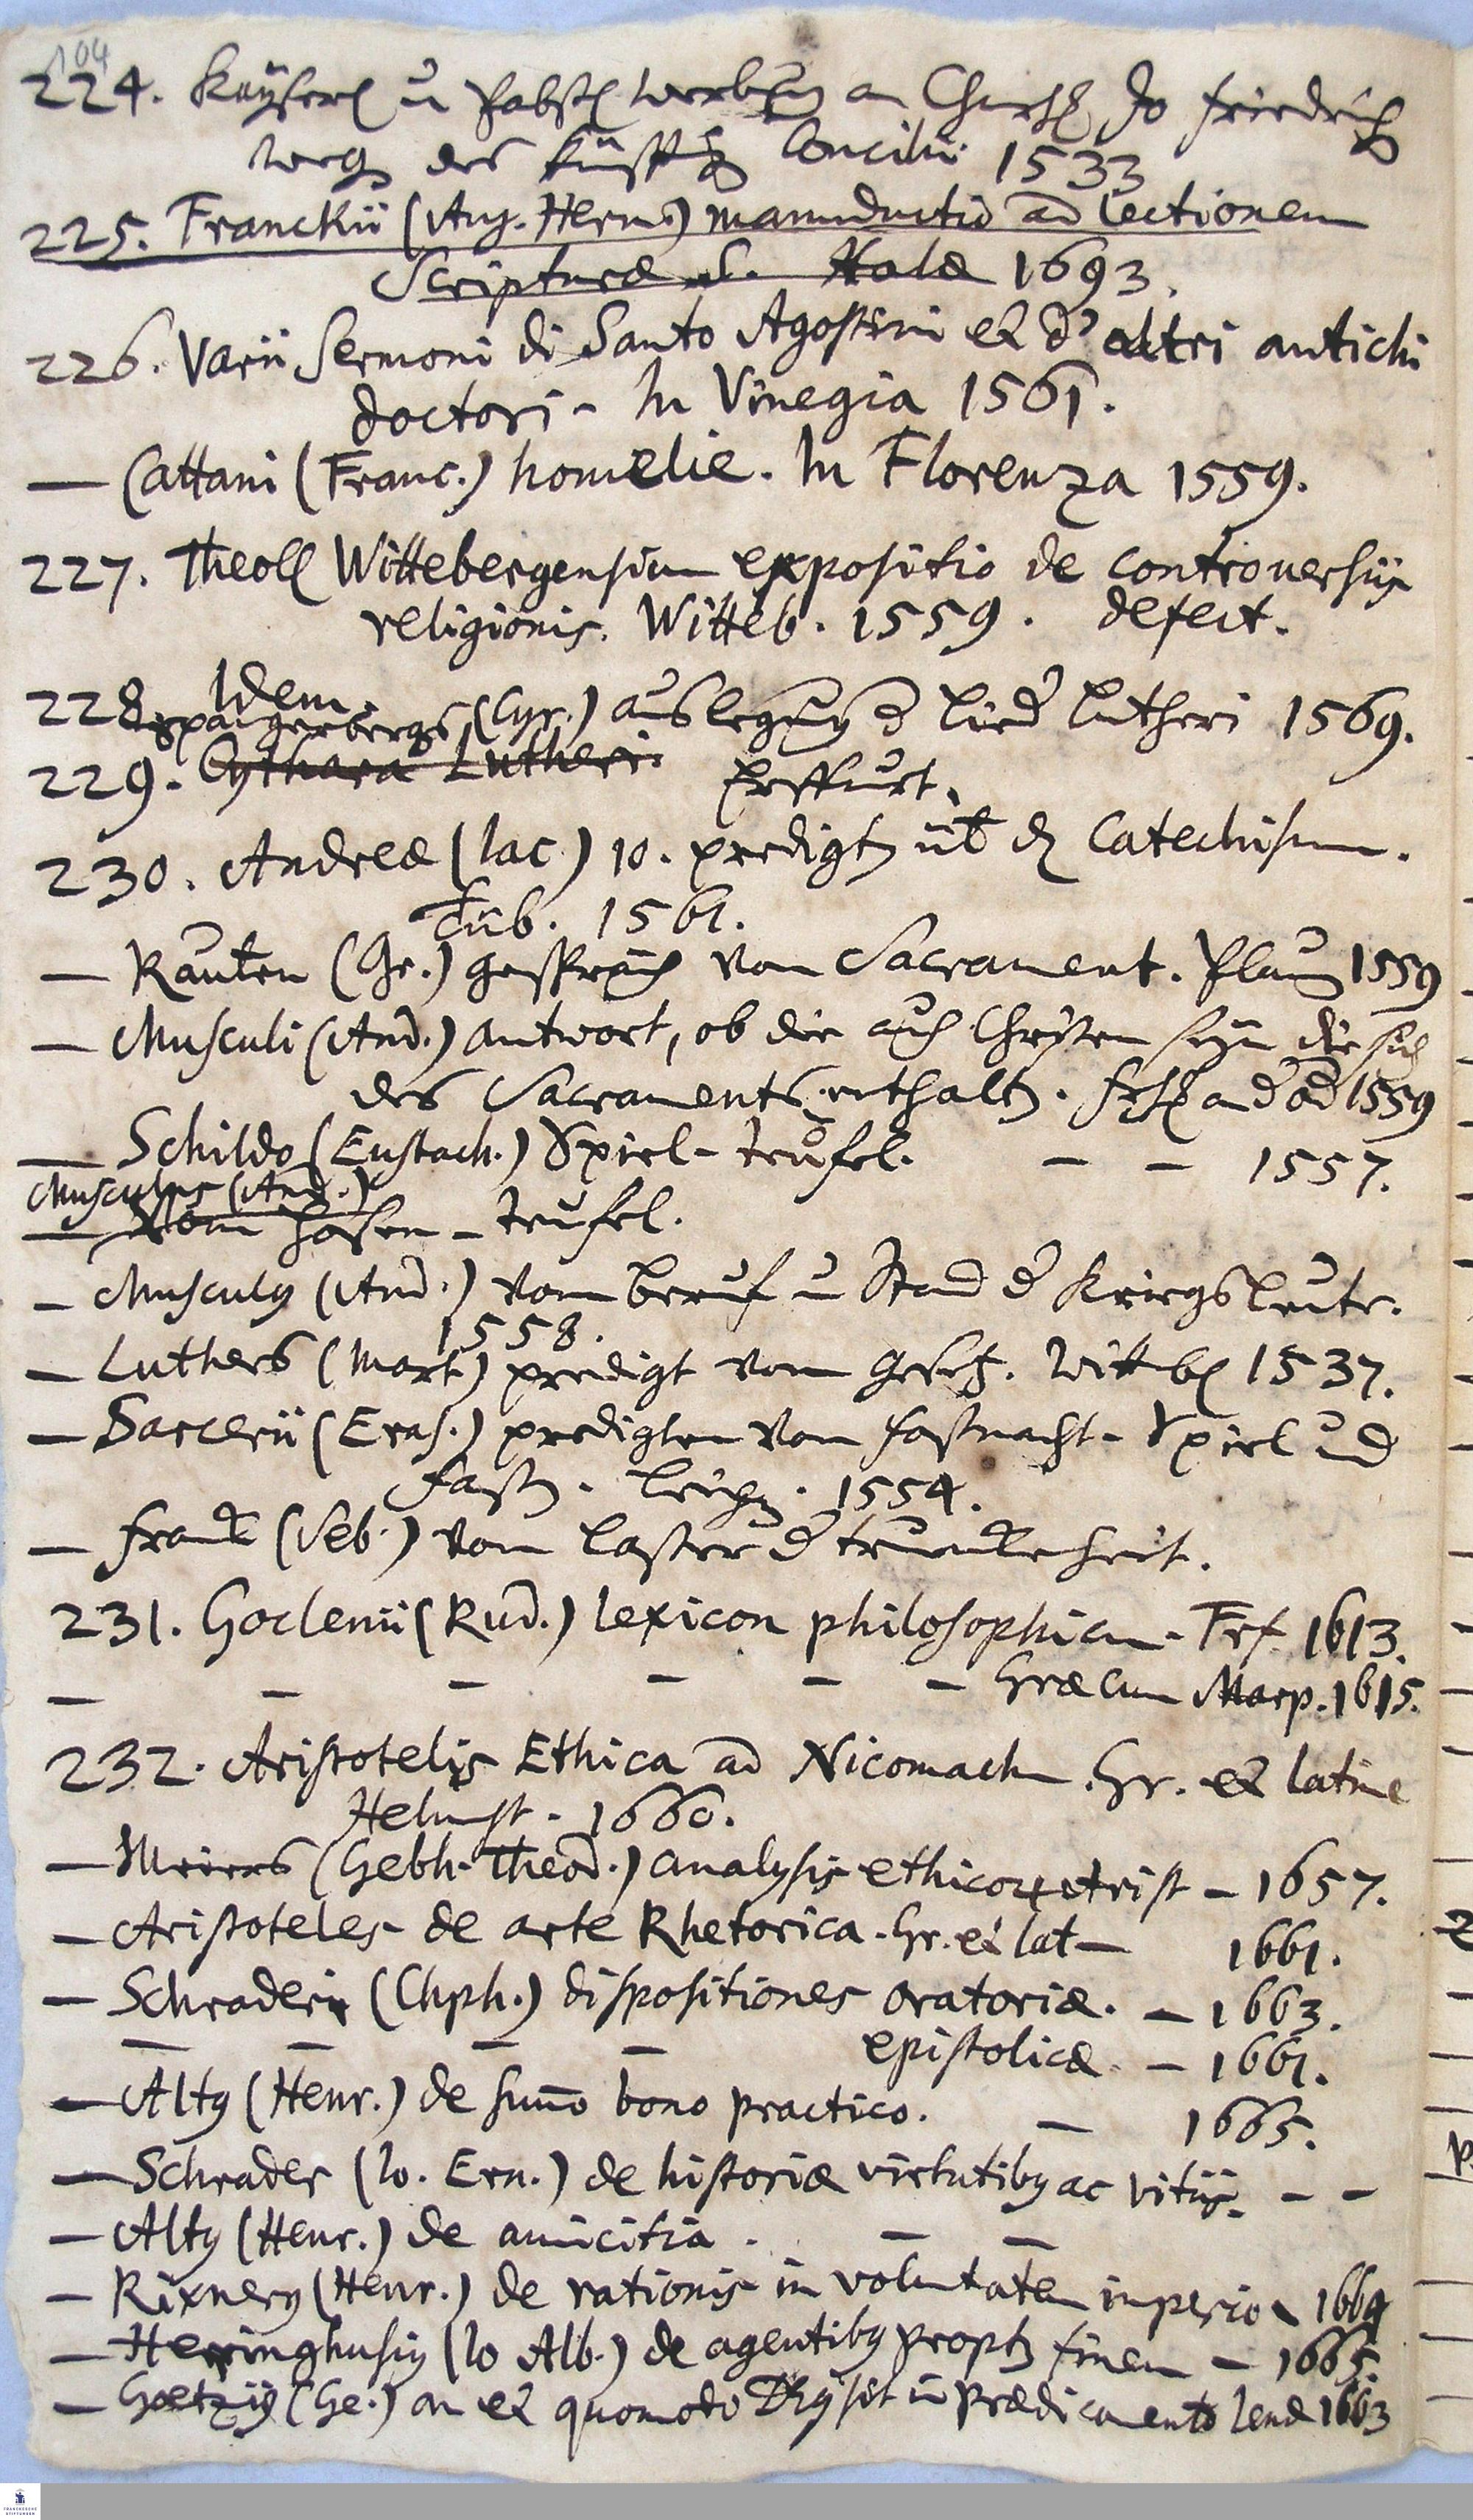 104
224. Kaÿsers u Pabsts werbung an Churf. Jo Friedrich
weg des künfftig Concilii. 1533
225. Franckii (Aug. Herm.) manuductio ad lectionem
Scripturæ S. Halæ 1693.
226. Varii Sermoni di Santo Agostini et d'altri antichi
doctori - In Vinegia 1561.
— Cattani (Franc.) homelie. In Florenza 1559.
227. Theoll Wittebergensium expositio de controversiis
religionis. Witteb. 1559. defect.
228. Idem.
Spangenbergs (Cyr.) auslegung d lieder Lutheri 1569.
229. Cythara Lutheri. Erffurt.
230. Andreæ (Iac.) 10. predigt üb d Catechismum.
Tüb. 1561.
— Rauten (Ge.) gespräch vom Sacrament. 1559
— Musculi (And.) antwort, ob die auch Christen seyn die sich
des Sacraments enthalten. Frf a d Od 1559
— Schildo (Eustach.) Spiel-teufel. — — 1557.
Musculus (And.)
— Vom hosen-teufel.
— Musculus (And.) vom beruf u Stand d Kriegsleute.
1558.
— Luthers (Mart) predigt vom gesetz. Wittb 1537.
— Sarcerii (Eras.) predigten vom fastnacht-Spiel und
fasten. Leipz. 1554.
— Franck (Seb.) vom laster d trunckenheit.
231. Goclenii (Rud.) lexicon philosophicum - Frf. 1613.
— — — — — — Græcum Marp. 1615.
232. Aristotelis Ethica ad Nicomach. Gr. et latine
Helmst. 1660.
— Meiers (Gebh. Theod.) analysis ethicor Arist — 1657.
— Aristoteles de arte Rhetorica. Gr. et lat — 1661.
— Schraderi (Chph.) dispositiones oratoriæ. — 1663.
— — — — epistolicæ — 1661.
— Altus (Henr.) de summo bono practico. — 1665.
— Schrader (Io. Ern.) de historiæ virtutibus ac vitiis. — —
— Altus (Henr.) de amicitia. — —
— Rixnerus (Henr.) de rationis in voluntatem imperio 1664
— Heringhusius (Io Alb.) de agentibus propter finem — 1665.
— Goetzius (Ge.) an et quomodo sit in prædicamento Ienæ 1663